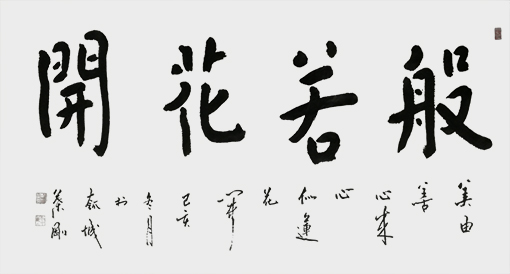 般若花開
美由善心來心似蓮花開己亥冬月於瓠城蔡剛